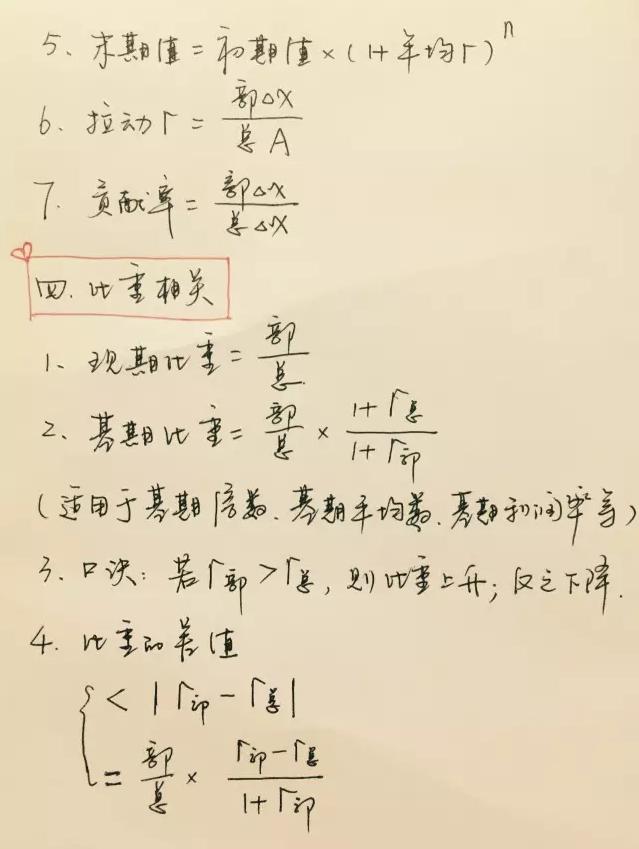 5、末期值 = 初期值 × (1+年均r)^n
6、拉动r = 部△X / 总A
7、贡献率 = 部△X / 总△X
四、比重相关
1、现期比重 = 部 / 总
2、基期比重 = 部 / 总 × (1+r总) / (1+r部)
(适用于基期倍数、基期平均数、基期利润率等)
3、口诀：若r部>r总，则比重上升；反之下降.
4、比重的差值
{ < |r部 - r总|
= 部 / 总 × (r部 - r总) / (1+r部)